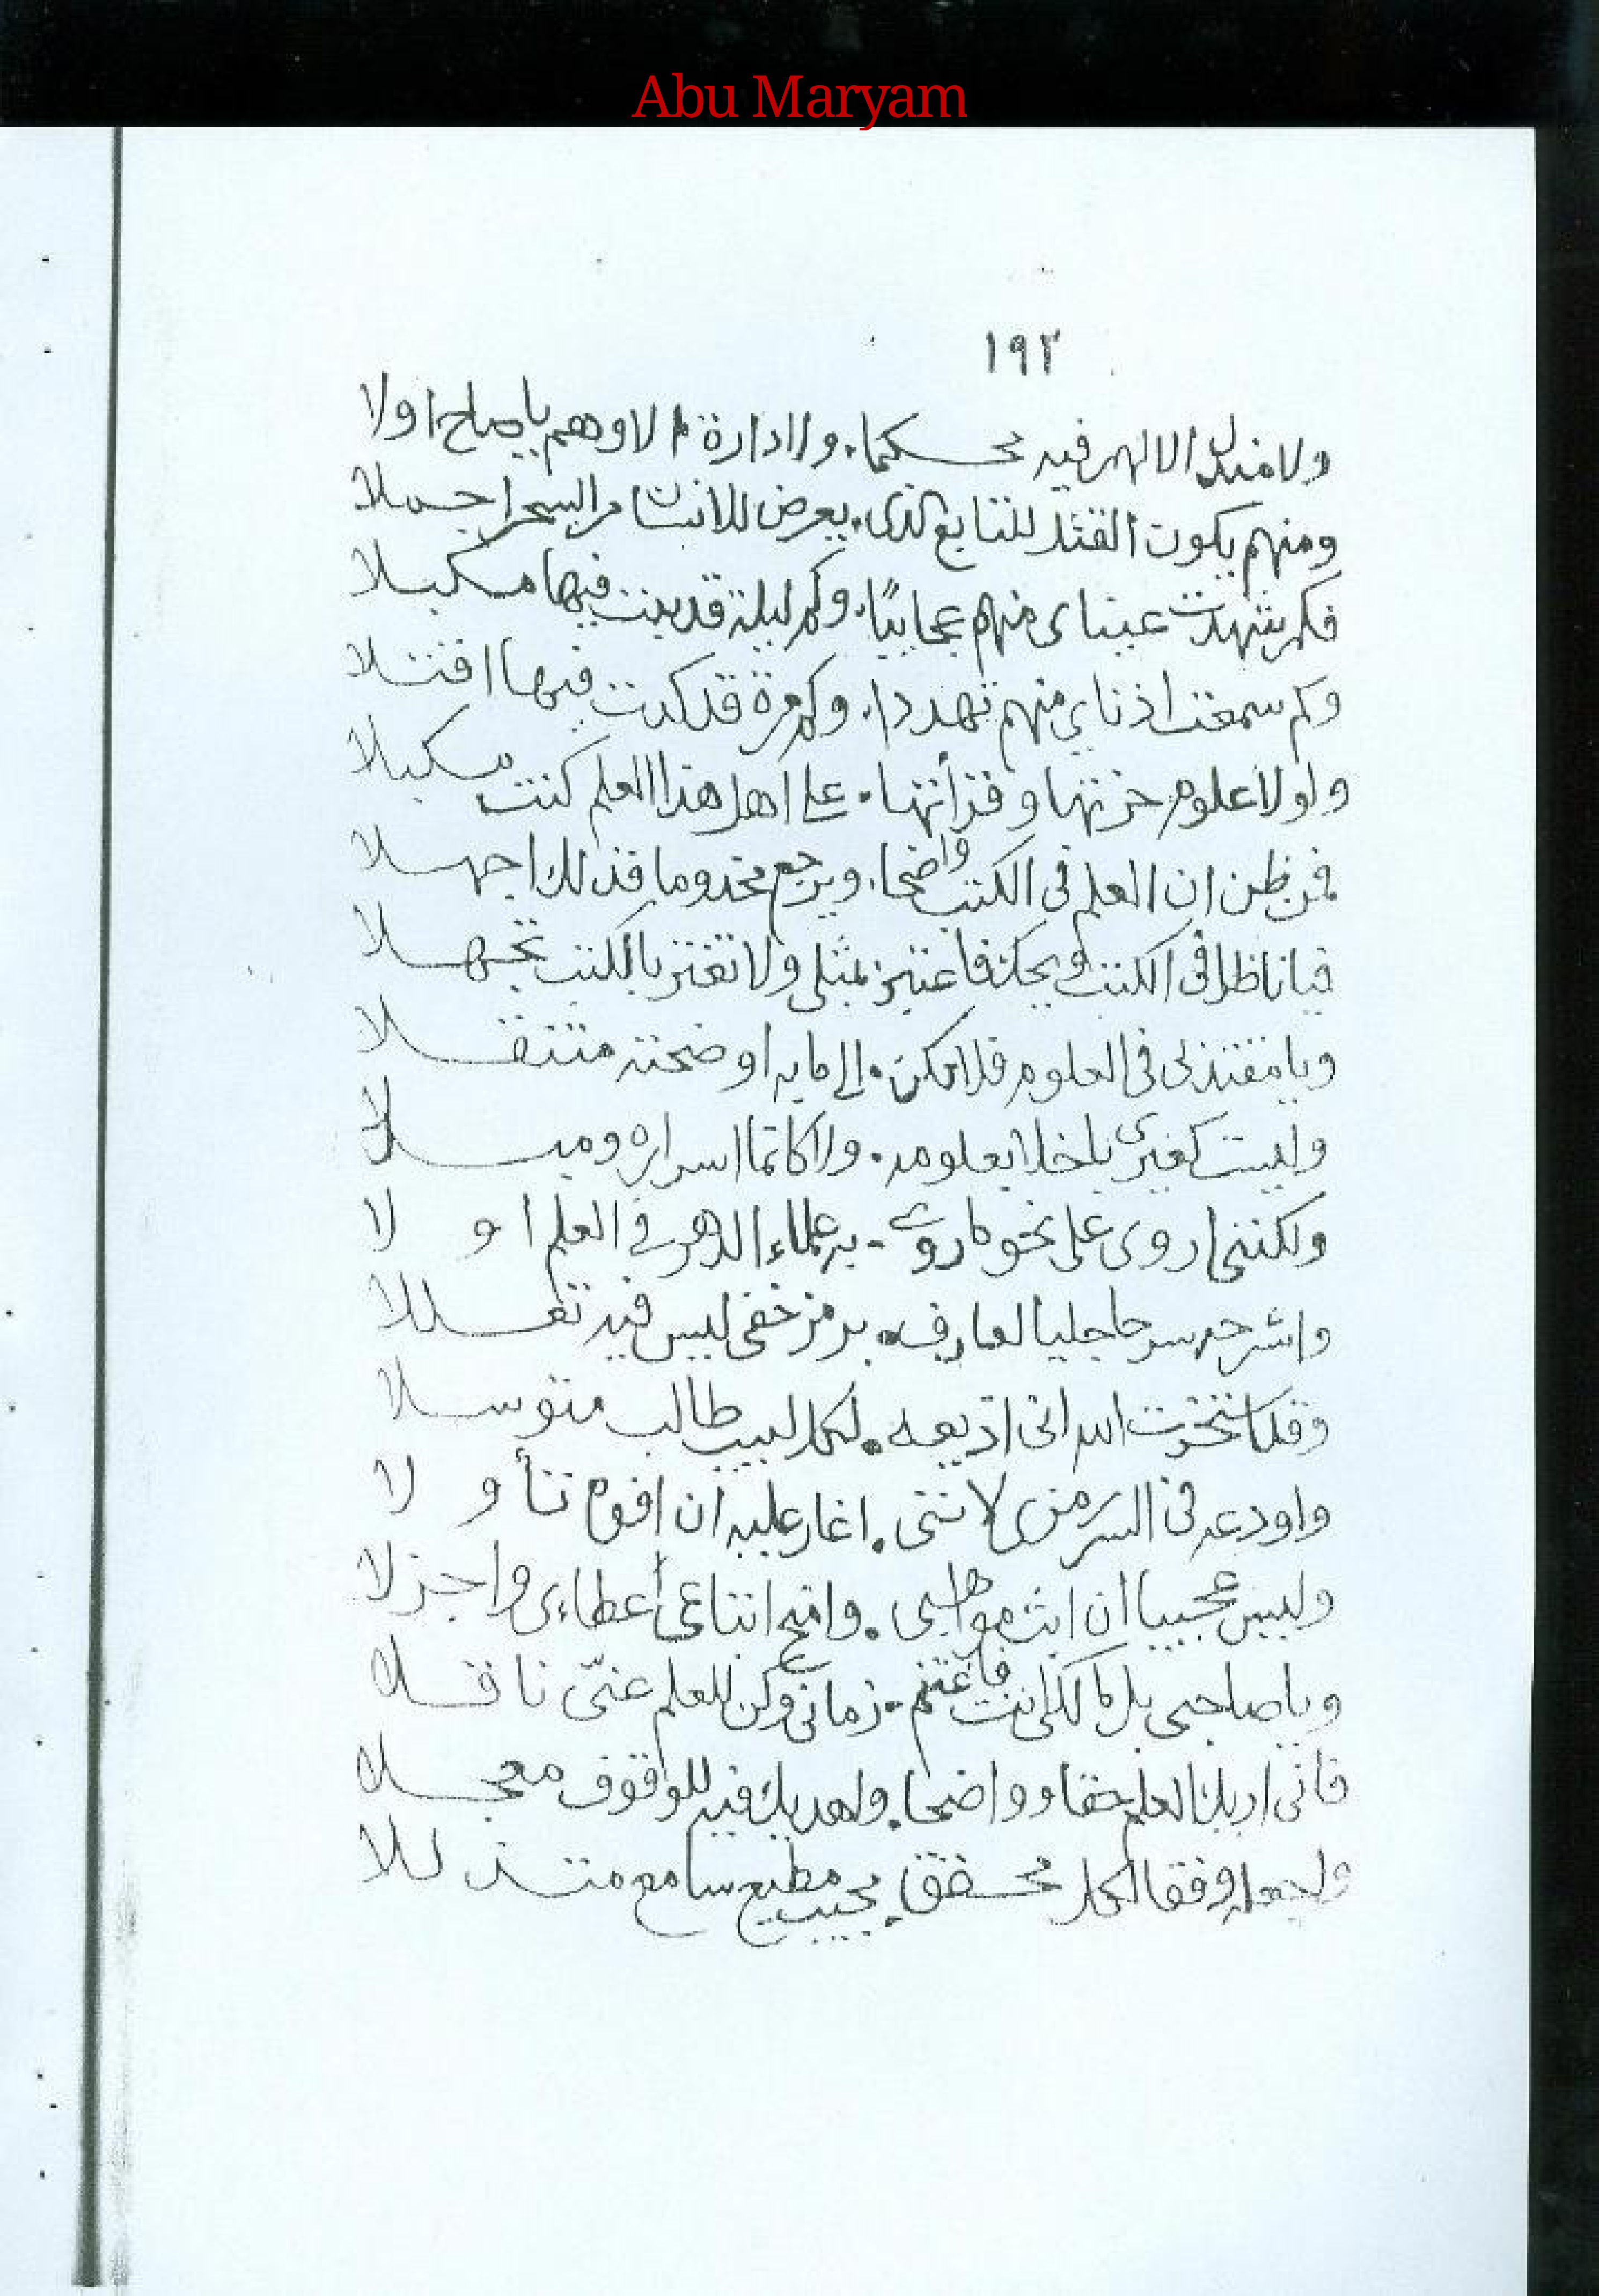 Abu Maryam
١٩٢
ولا مندل الا لهم فيه محكما. ولا ادارة الا وهم يا صاح اولا
ومنهم يكون القتل للتابع الذى. يعرض للانسان مر السحر اجملا
فكم شهدت عيناى منهم عجايبًا. وكم ليلة قد بت فيها مكبلا
وكم سمعت اذناي منهم تهددا. وكم مرة قد كدت فيها اقتلا
ولولا علوم حزتها وقرأتها. على اهل هذا العلم كنت مكبلا
فمن ظن ان العلم فى الكتب واضحا. ويرجع مخدوما فذلك اجهلا
فيا ناظرا فى الكتب ويحك فاعتبر بمثلى ولا تغتر بالكتب تجهلا
ويا مقتد لى فى العلوم فلا تكن. الى ما به اوضحته متنقلا
وليست كغيرى باخلا بعلومه. ولا كاتما اسراره ومبـلا
ولكننى اروى على نحو ما روى. به علماء الدهر فى العلم اولا
واشرحه سرحا جليا لعارف. برمز خفى ليس فيه تعللا
وقد استخرت الله انى اذيعه. لكل لبيب طالب متوسلا
واودعه فى السر رمزى لاننى. اغار عليه ان افوه تأولا
وليس عجيبا ان ابث مواهبى. وامنح اتباعى أعطاءى واجزلا
ويا صاحبى بل مالكى انت فاغتنم. زمانى وكن للعلم عنّى ناقلا
فانى اريك العلم حقا وواضحا. واهديك فيه للوقوف معجلا
واجعله وفقا لكل محقق. مجيب مطيع سامع متذللا